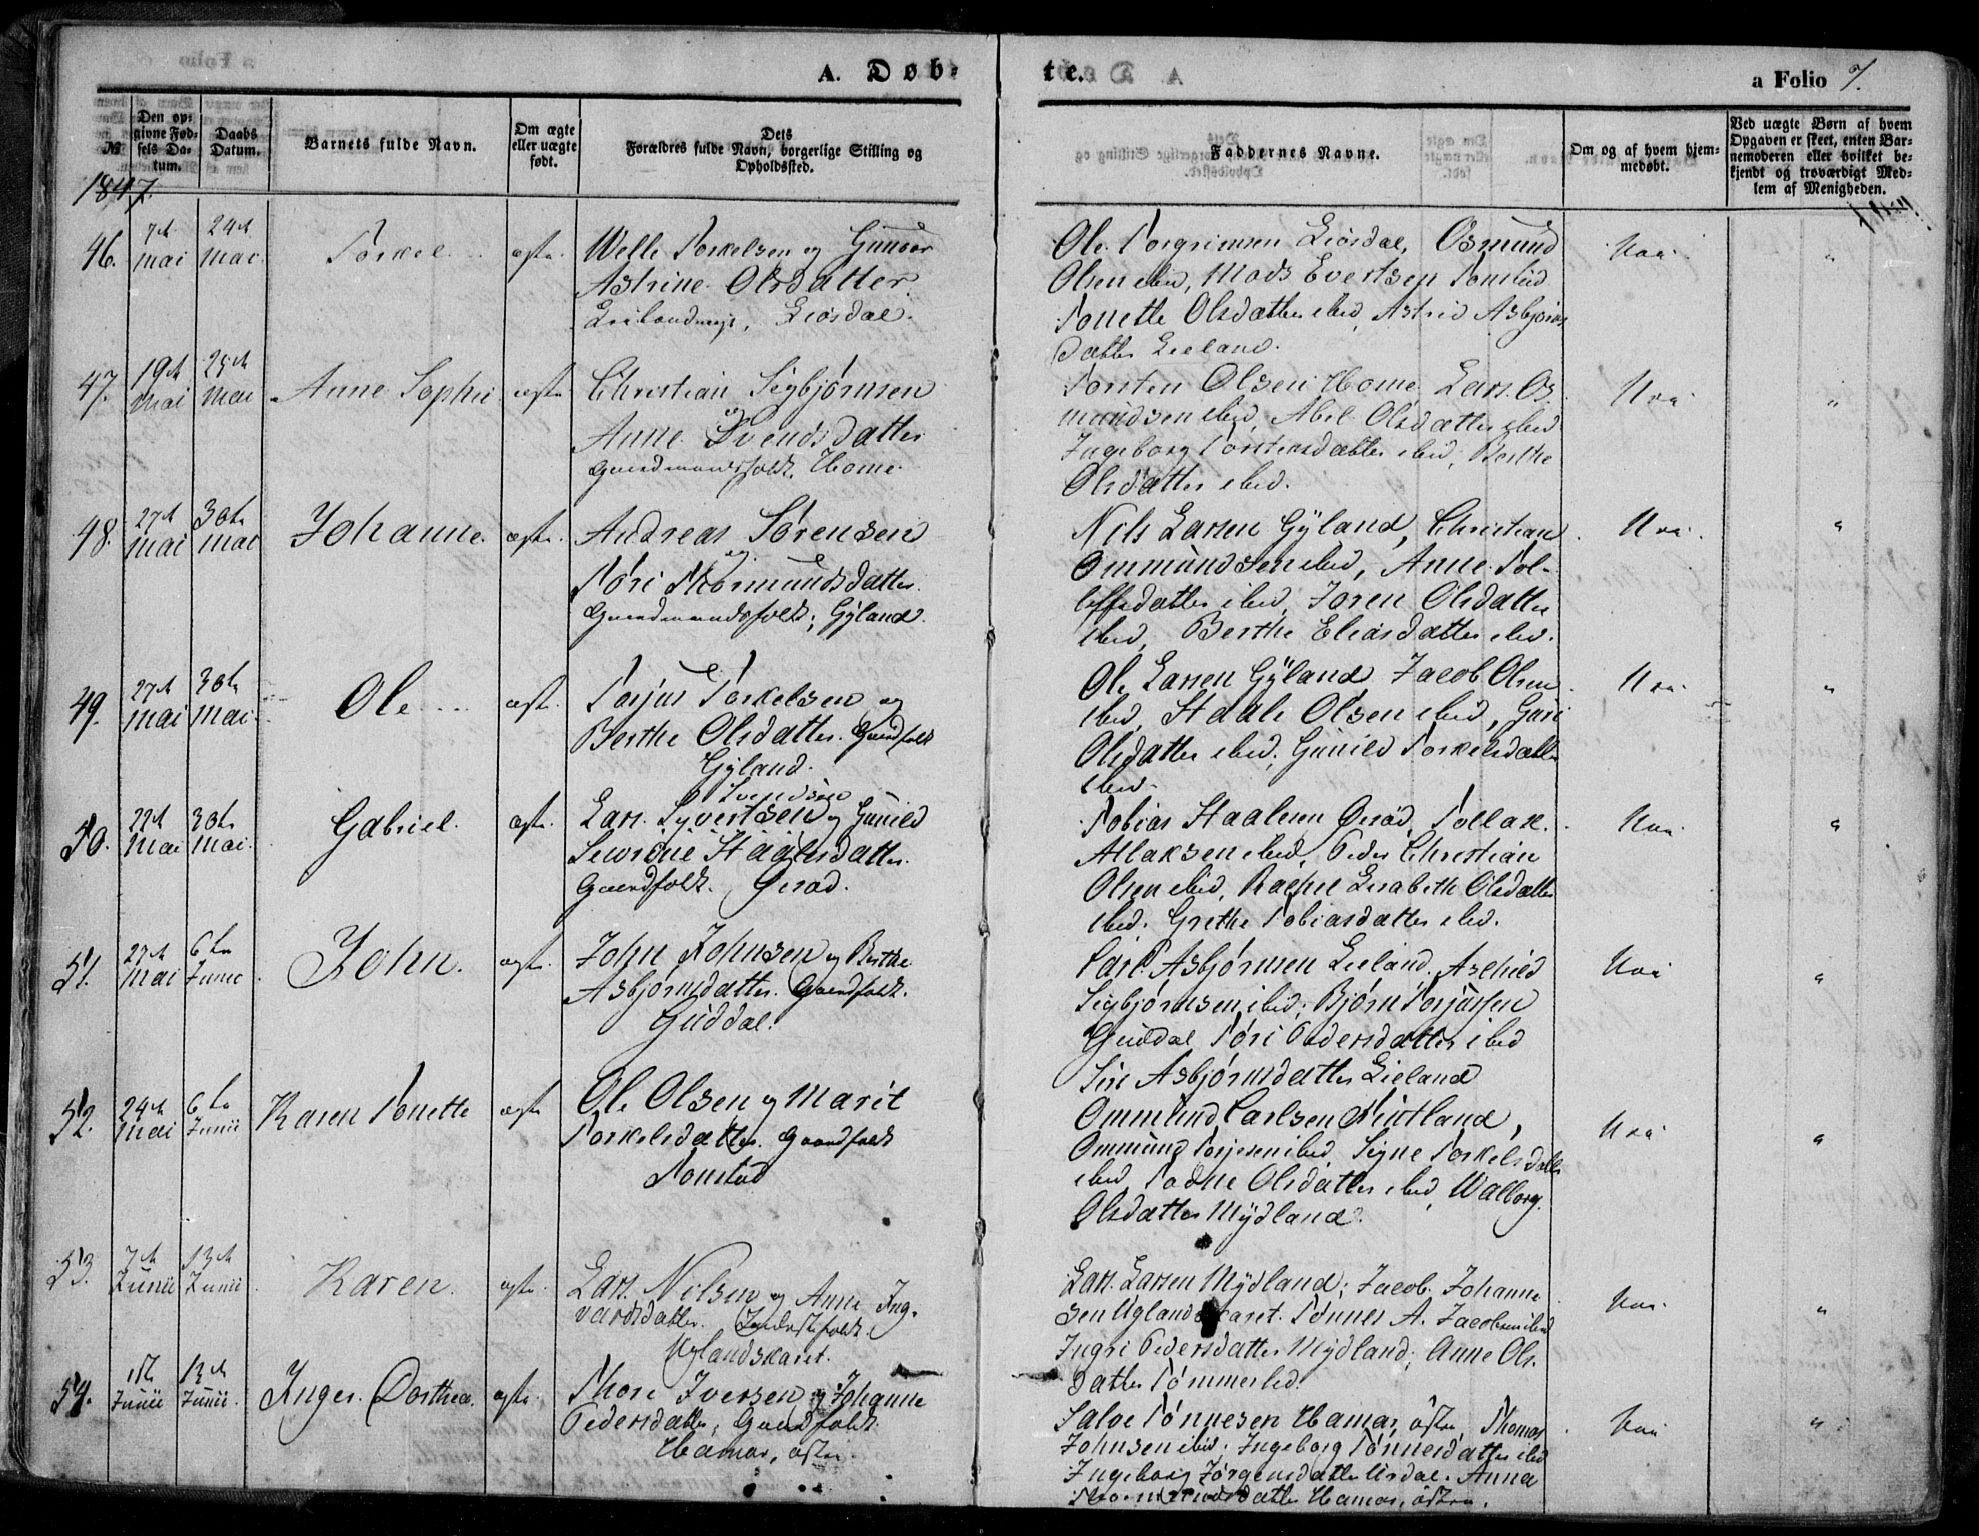 A. Døb-
te.
a Folio 7.
№
Den op-
givne Fød-
sels Da-
tum.
Daabs
Datum.
Barnets fulde Navn.
Om ægte
eller uægte
født.
Dets
Forældres fulde Navn, borgerlige Stilling og
Opholdssted.
Faddernes Navne.
Om og af hvem hjem-
medøbt.
Ved uægte Børn af hvem
Opgaven er skeet, enten Bar-
nemoderen eller hvilket be-
kjendt og troværdigt Med-
lem af Menigheden.
1847.
46.
7de
mai
24de
mai
Torkel
ægte
Welle Torkelsen og Gunvor
Astrine Olsdatter
Liosdal.
Ole Torgrimsen Liosdal, Osmund
Olsen ibid, Mads Evertsen Tonstad
Tonette Olsdatter ibid, Astrid Asbjørns
datter Lieland.
"
47.
19de
mai
25de
mai
Anne Sophie
ægte
Christian Sigbjørnsen
og
Anne Svendsdatter
Gaardmandsfolk. Home.
Torsten Olsen Home, Lars Os
mundsen ibid, Abel Olsdatter ibid
Ingeborg Torstensdatter ibid, Berthe
Olsdatter ibid.
"
48.
27de
mai
30te
mai
Johanne.
ægte.
Andreas Sørensen
og
Tøri Thormundsdatter
Gaardmandsfolk; Gyland.
Nils Larsen Gyland, Christian
Ommundsen ibid, Anne Tol-
lefsdatter ibid, Joren Olsdatter
ibid, Berthe Eliasdatter ibid.
"
49.
27de
mai
30te
mai
Ole
ægte.
Torjus Torkelsen og
Berthe Olsdatter. Gaardfolk
Gyland.
Ole Larsen Gyland Jacob Olsen
ibid, Staale Olsen ibid, Guri
Olsdatter ibid, Gunild Torkelsdatter
ibid.
"
50.
22de
mai
30te
mai.
Gabriel.
ægte.
Svendsen
Lars Syvertsen og Gunild
Sewrine Staalesdatter.
Gaardfolk.
Tobias Staalesen, Tollak
Atlaksen ibid, Peder Christian
Olsen ibid, Rachel Lisabethe Olsdatter
ibid. Grethe Tobiasdatter ibid.
"
51.
23de
mai
6te
Junii
John.
ægte.
John Johnsen og Berthe
Asbjørnsdatter. Gaardfolk.
Guddal.
Carl Asbjørnsen Lieland, Aschild
Sigbjørnsen ibid; Bjørn Torjussen
Guddal Tøri Pedersdatter ibid
Siri Asbjørnsdatter Lieland
"
52.
24de
mai
6te
Junii
Karen Tonette
ægte
Ole Olsen og Marit
Torkelsdatter. Gaardfolk
Tonstad
Ommund Carlsen Nuttland,
Ommund Torjesen ibid, Signe Torkelsdatter
ibid, Todne Olsdatter ibid, Walborg
Olsdatter Mydland.
"
53.
7de
Junii
13de
Junii
Karen.
ægte.
Lars Nilsen og Anne Ing-
varsdatter. Inderstefolk.
Uglandskaret.
Lars Larsen Mydland; Jacob Johanne
sen Uglandskaret. Tønnes A. Jacobsen ibid
Ingri Pedersdatter Mydland; Anne Ols
datter Tømmerlid.
"
54.
Junii
13de
Junii.
Inger Dorthea.
ægte.
Thore Iversen og Johanne
Pedersdatter, Gaardfolk
Hamar, østre.
Salve Tønnesen Hamar, østre, Thomas
Johnsen ibid. Ingeborg Tønnesdatter ibid
Ingeborg Jørgensdatter Urdal. Anna
Thormundsdatter Hamar, østre.
"